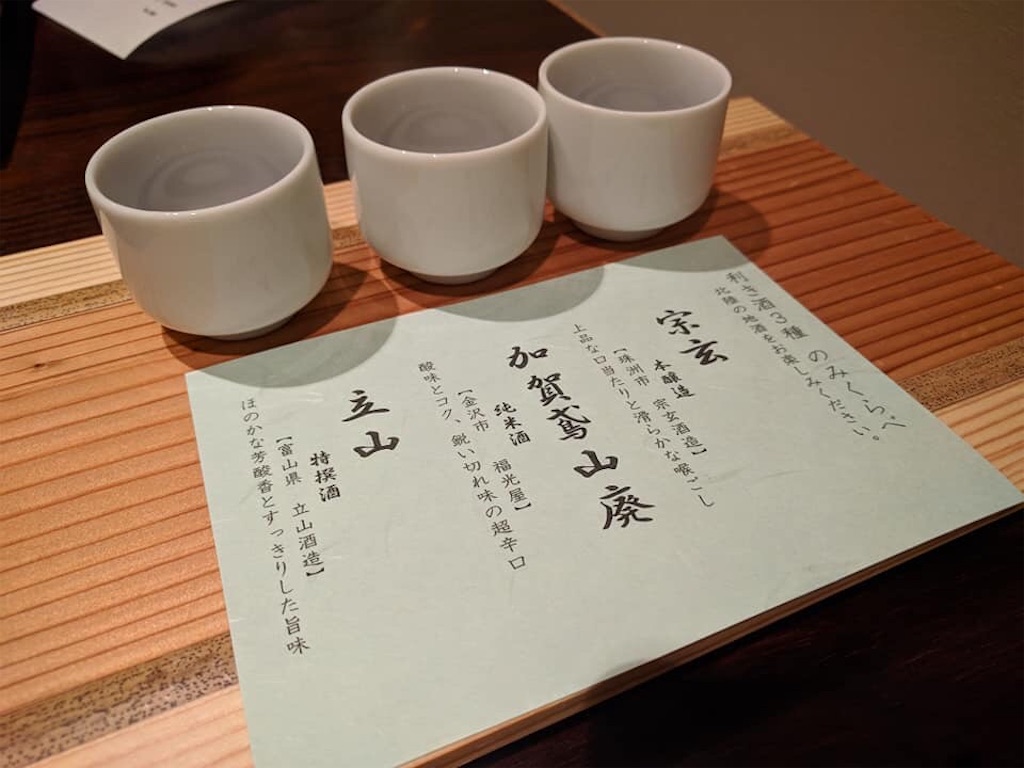 利き酒3種 のみくらべ
北陸の地酒をお楽しみください。
宗玄
本醸造
【珠洲市 宗玄酒造】
上品な口当たりと滑らかな喉ごし
加賀鳶山廃
純米酒
【金沢市 福光屋】
酸味とコク、鋭い切れ味の超辛口
立山
特撰酒
【富山県 立山酒造】
ほのかな芳酸香とすっきりした旨味